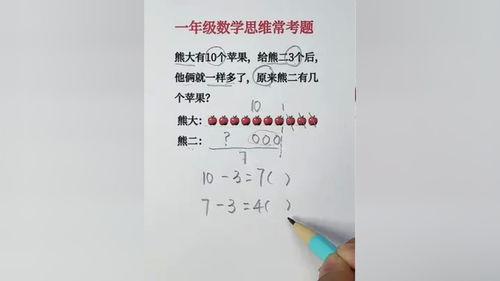 一年级数学思维常考题
熊大有10个苹果，给熊二3个后，
他俩就一样多了，原来熊二有几
个苹果？
10
熊大：
熊二： ？ 000
7
10-3=7( )
7-3=4( )